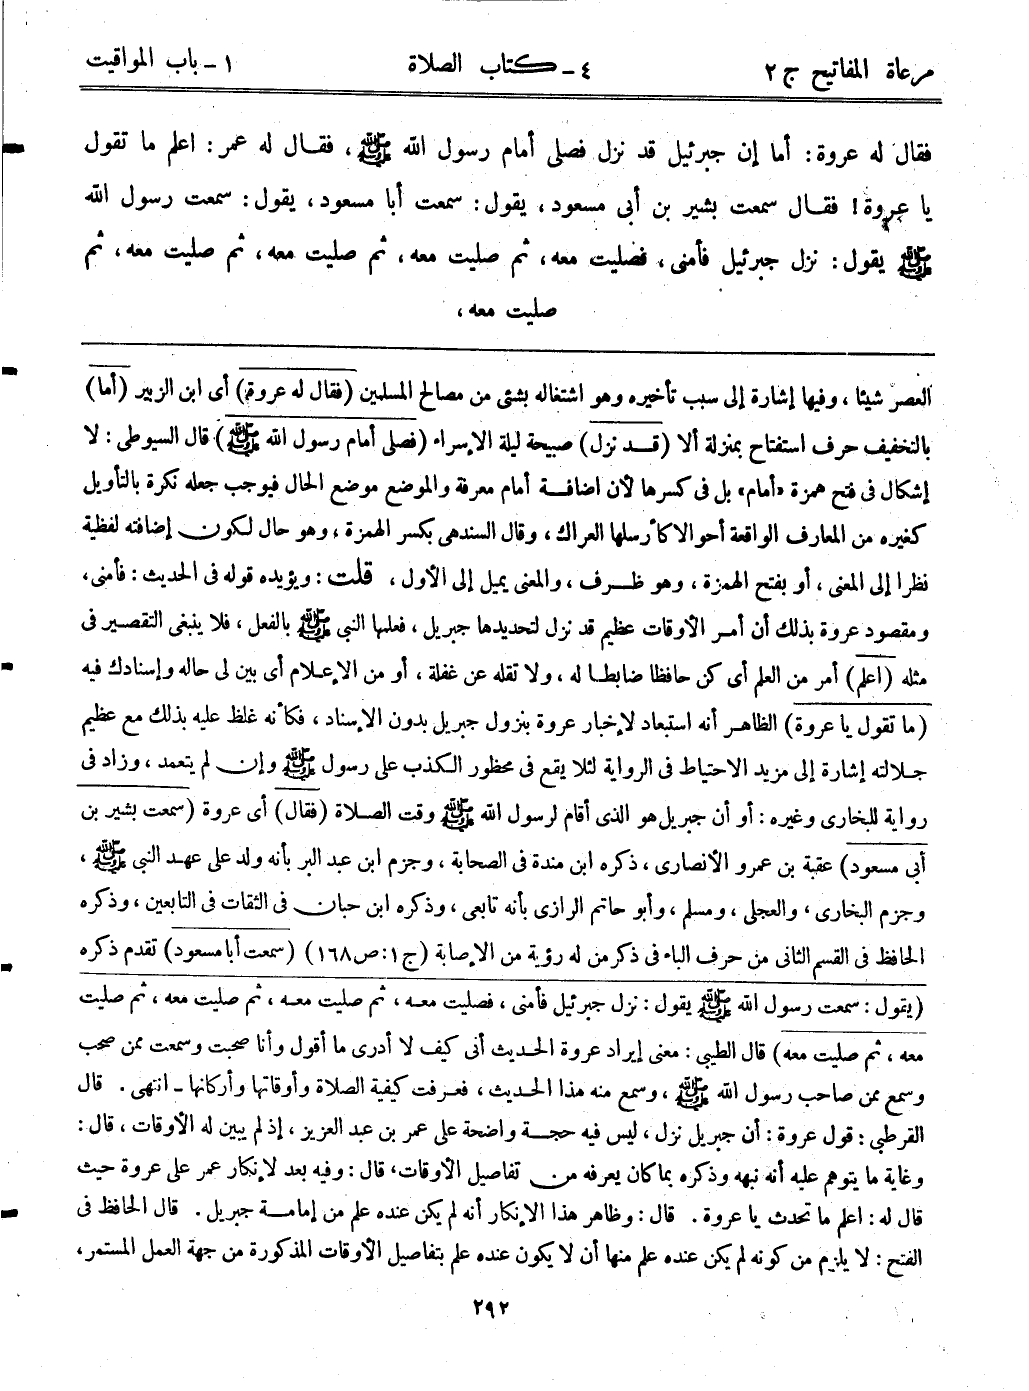 مرعاة المفاتيح ج ٢
٤ - كتاب الصلاة
١ - باب المواقيت
فقال له عروة: أما إن جبرئيل قد نزل فصلى أمام رسول الله ﷺ، فقال له عمر: اعلم ما تقول
يا عروة! فقال سمعت بشير بن أبى مسعود، يقول: سمعت أبا مسعود، يقول: سمعت رسول الله
ﷺ يقول: نزل جبرئيل فأمنى، فصليت معه، ثم صليت معه، ثم صليت معه، ثم صليت معه، ثم
صليت معه،
العصر شيئا، وفيها إشارة إلى سبب تأخيره وهو اشتغاله بشئى من مصالح المسلمين (فقال له عروة) أى ابن الزبير (أما)
بالتخفيف حرف استفتاح بمنزلة ألا (قد نزل) صبيحة ليلة الإسراء (فصلى أمام رسول الله ﷺ) قال السيوطى: لا
إشكال فى فتح همزة «أمام» بل فى كسرها لأن اضافة أمام معرفة والموضع موضع الحال فيوجب جعله نكرة بالتأويل
كغيره من المعارف الواقعة أحوالا كأرسلها العراك، وقال السندهى بكسر الهمزة، وهو حال لكون إضافته لفظية
نظرا إلى المعنى، أو بفتح الهمزة، وهو ظرف، والمعنى يميل إلى الأول، قلت: ويؤيده قوله فى الحديث: فأمنى،
ومقصود عروة بذلك أن أمر الأوقات عظيم قد نزل لتحديدها جبريل، فعلمها النبى ﷺ بالفعل، فلا ينبغى التقصير فى
مثله (اعلم) أمر من العلم أى كن حافظا ضابطا له، ولا تقله عن غفلة، أو من الإعلام أى بين لى حاله وإسنادك فيه
(ما تقول يا عروة) الظاهر أنه استبعاد لإخبار عروة بنزول جبريل بدون الإسناد، فكأنه غلظ عليه بذلك مع عظيم
جلالته إشارة إلى مزيد الاحتياط فى الرواية لئلا يقع فى محظور الكذب على رسول ﷺ وإن لم يتعمد، وزاد فى
رواية للبخارى وغيره: أو أن جبريل هو الذى أقام لرسول الله ﷺ وقت الصلاة (فقال) أى عروة (سمعت بشير بن
أبى مسعود) عقبة بن عمرو الأنصارى، ذكره ابن مندة فى الصحابة، وجزم ابن عبد البر بأنه ولد على عهد النبى ﷺ،
وجزم البخارى، والعجلى، ومسلم، وأبو حاتم الرازى بأنه تابعى، وذكره ابن حبان فى الثقات فى التابعين، وذكره
الحافظ فى القسم الثانى من حرف الباء فى ذكر من له رؤية من الإصابة (ج١: ص١٦٨) (سمعت أبا مسعود) تقدم ذكره
(يقول: سمعت رسول الله ﷺ يقول: نزل جبرئيل فأمنى، فصليت معه، ثم صليت معه، ثم صليت معه، ثم صليت
معه، ثم صليت معه) قال الطيبى: معنى إيراد عروة الحديث أنى كيف لا أدرى ما أقول وأنا صحبت وسمعت ممن صحب
وسمع ممن صاحب رسول الله ﷺ، وسمع منه هذا الحديث، فعرفت كيفية الصلاة وأوقاتها وأركانها - انتهى. قال
القرطبى: قول عروة: أن جبريل نزل، ليس فيه حجة واضحة على عمر بن عبد العزيز، إذ لم يبين له الأوقات، قال:
وغاية ما يتوهم عليه أنه نبهه وذكره بما كان يعرفه من تفاصيل الأوقات، قال: وفيه بعد لإنكار عمر على عروة حيث
قال له: اعلم ما تحدث يا عروة. قال: وظاهر هذا الإنكار أنه لم يكن عنده علم من إمامة جبريل. قال الحافظ فى
الفتح: لا يلزم من كونه لم يكن عنده علم منها أن لا يكون عنده علم بتفاصيل الأوقات المذكورة من جهة العمل المستمر،
٢٩٢